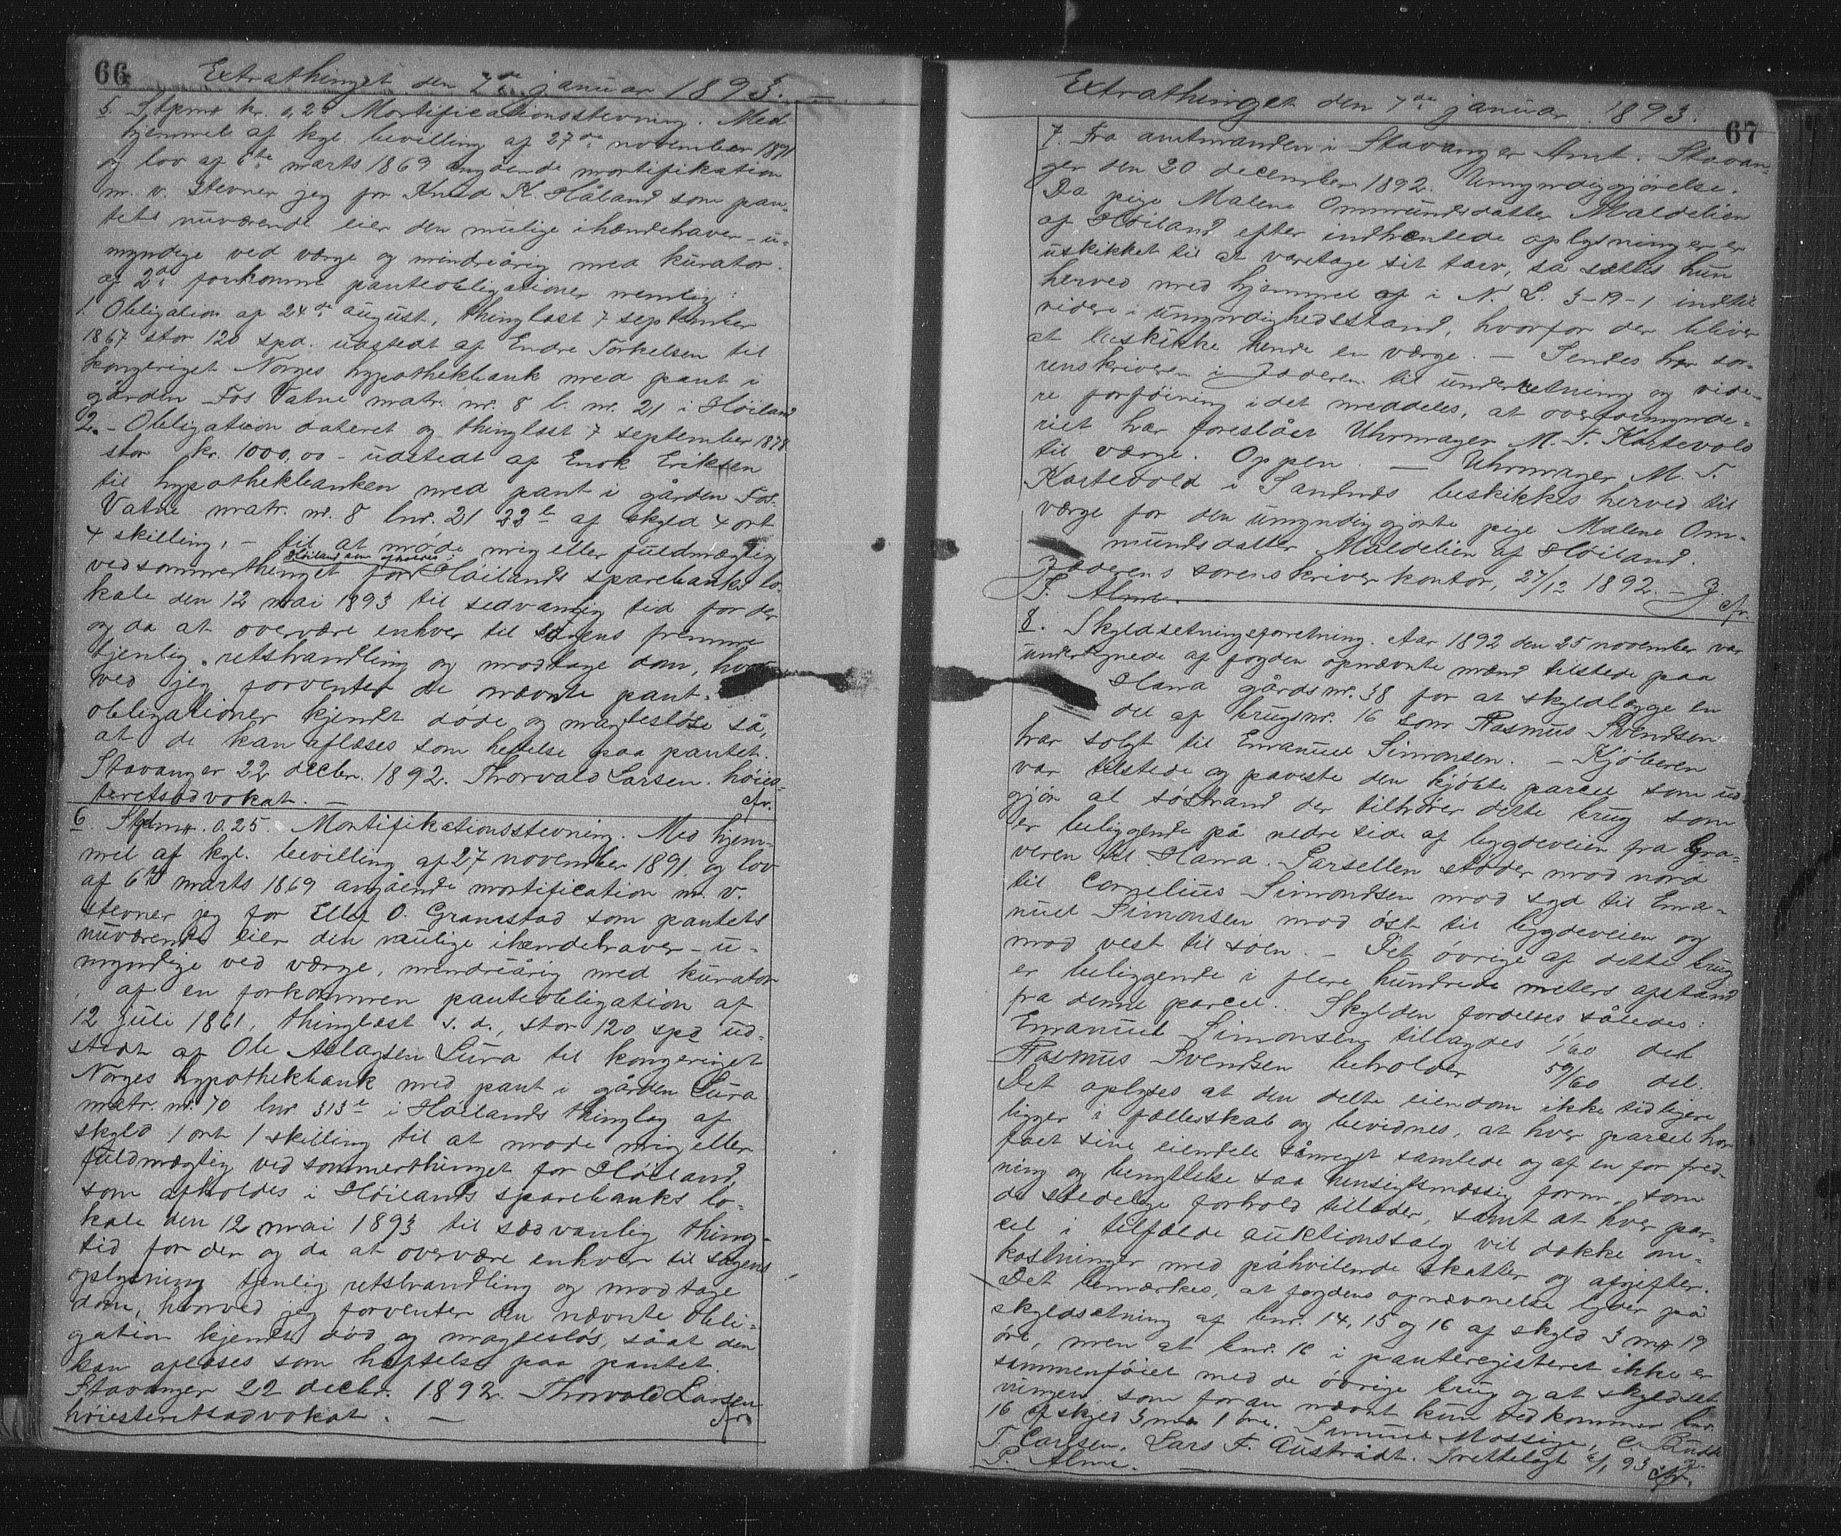 66
Extrathinget den 7de januar 1893.
5. Stpmrk kr. 0,25 Mortificationsstevning. Med
hjemmel af kgl. bevilling af 27de november 1891
og lov af 6te marts 1869 angående mortifikation
m. v. stevner jeg for Knud K. Håland som pan-
tets nuværende eier den mulige ihændehaver - u-
myndige ved værge og mindreårig med kurator.
af 2de forkomne panteobligationer nemlig:
1. Obligation af 24de august, thinglæst 7 september
1867 stor 120 spd. udstedt af Endre Torkelsen til
kongeriget Norges hypothekbank med pant i
gården Fos Vatne matr. nr. 8 l. nr. 21 i Høiland
2. - Obligation dateret og thinglæst 7 september 1878
stor kr. 1000,00 - udstedt af Enok Eriksen
til hypothekbanken med pant i gården Fos
Vatne matr. nr. 8 lnr. 21 22b af skyld 4 ort
4 skilling, - til at møde mig eller fuldmægtig
Høiland som afholdes i
ved sommerthinget for Høilands sparebanks lo-
kale den 12 mai 1893 til sedvanlig tid for der
og da at overvære enhver til sagens fremme
tjenlig retshandling og modtage dom, hvor-
ved jeg forventer de nævnte pant-
obligationer kjendt døde og magtesløse så,
at de kan aflæses som heftelse paa pantet.
Stavanger 22 decbr. 1892. Thorvald Larsen. høies-
teretsadvokat. — cfr.
6. Stpmrk. 0.25. Mortifikationsstevning. Med hjem-
mel af kgl. bevilling af 27 november 1891 og lov
af 6te marts 1869 angående mortification m. v.
stevner jeg for Ellef O. Gramstad som pantets
nuværende eier den mulige ihændehaver - u-
myndige ved værge, mindreårig med kurator
af en forkommen panteobligation af
12 juli 1861, thinglæst s. d., stor 120 spd ud-
stedt af Ole Aslagsen Lura til kongeriget
Norges hypothekbank med pant i gården Lura
matr. nr. 70 lnr. 313b i Høilands thinglag af
skyld 1 ort 1 skilling til at møde mig eller
fuldmægtig ved sommerthinget for Høiland,
som afholdes i Høilands sparebanks lo-
kale den 12 mai 1893 til sædvanlig thing-
tid for der og da at overvære enhver til sagens
oplysning tjenlig retshandling og modtage
dom, hvorved jeg forventer den nævnte obli-
gation kjendt død og magtesløs, såat den
kan aflæses som heftelse paa pantet.
Stavanger 22 decbr. 1892. Thorvald Larsen
høiesteretsadvokat. — cfr.
Extrathinget den 7de januar 1893.
67
7. Fra amtmanden i Stavanger Amt. Stavan-
ger den 20 december 1892. Umyndiggjørelse.
Da pige Malene Ommundsdatter Maldelien
af Høiland efter indhentede oplysninger er
uskikket til at varetage sit tarv, så sættes hun
herved med hjemmel af i N. L. 3-19-1 indtil
videre i umyndighedsstand, hvorfor der bliver
at beskikke hende en værge. — Sendes hr. so-
renskriveren i Jæderen til underretning og vide-
re forføining idet meddeles, at overformynde-
riet har foreslået Uhrmager M. T. Kartevold
til værge. Oppen. — Uhrmager M. T.
Kartevold i Sandnes beskikkes herved til
værge for den umyndiggjorte pige Malene Om-
mundsdatter Maldelien af Høiland.
Jæderens sorenskriverkontor, 27/12 1892. —
P. Alme. cfr.
8. Skyldsetningsforretning. Aar 1892 den 25 november var
undertegnede af fogden opnævnte mænd tilstede paa
Hana gårds nr. 38 for at skyldlægge en
del af brugsnr. 16 som Rasmus Svendsen
har solgt til Emanuel Simonsen. — Kjøberen
var tilstede og paaviste den kjøbte parcel som ud-
gjør al søstrand der tilhører dette brug som
er beliggende på nedre side af bygdeveien fra Gra-
veren til Hana Parsellen støder mod nord
til Cornelius Simondsen mod syd til Ema-
nuel Simonsen mod øst til bygdeveien og
mod vest til søen. — Det øvrige af dette brug
er beliggende i flere hundrede meters afstand
fra denne parcel. Skylden fordeles således:
Emanuel Simonsen tillagdes 1/60 del
Rasmus Svendsen beholder 59/60 del.
Det oplyses at den delte eiendom ikke tidligere
ligger i fællesskab og bevidnes, at hver parcel har
faaet sine eiendele såmeget samlede og af en for fred-
ning og benyttelse saa hensigtsmæssig form, som
de stedelige forhold tillader, samt at hver par-
cel i tilfælde auktionssalg vil dække om-
kostninger med påhvilende skatter og afgifter.
Det bemærkes, at fogdens opnævnelse lyder på
skyldsætning af bnr. 14, 15 og 16 af skyld 3 mrk 19
øre, men at bnr. 16 i panteregisteret ikke er
sammenføiet med de øvrige brug og at skyldset-
ningen som foran nævnt kun vedkommer bnr.
16 af skyld 3 mrk 1 øre. Simmet Mossige, C.
T. Carlsen. Lars T. Austrådt. Tretteløgt 6/1 93
P. Alme. — cfr.